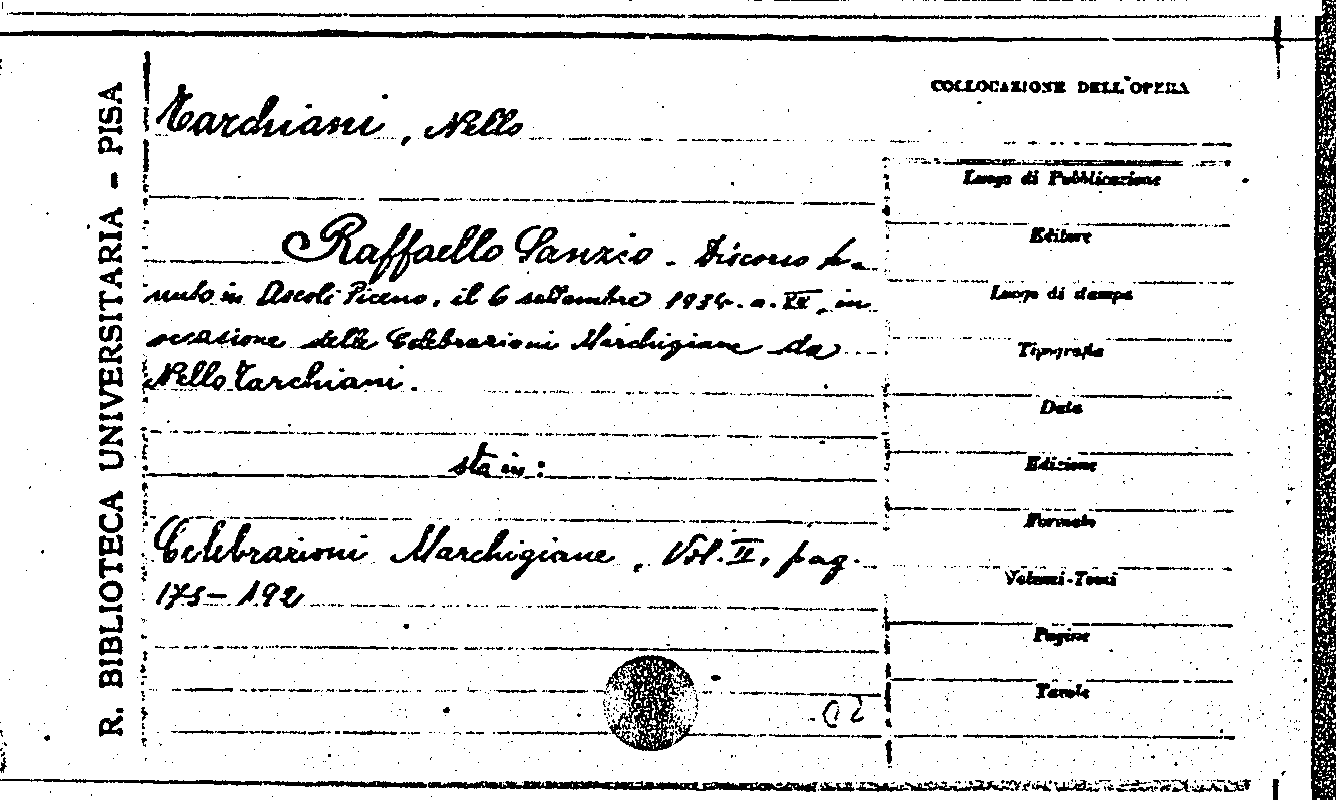 R. BIBLIOTECA UNIVERSITARIA - PISA
COLLOCAZIONE DELL'OPERA
Tarchiani, Nello
Raffaello Sanzio. Discorso te-
nuto in Ascoli Piceno, il 6 settembre 1934. a. XII, in
occasione delle Celebrazioni Marchigiane da
Nello Tarchiani.
sta in:
Celebrazioni Marchigiane, Vol. II, pag.
175-192
02
Luogo di Pubblicazione
Editore
Luogo di stampa
Tipografia
Data
Edizione
Formato
Volumi-Tomi
Pagine
Tavole